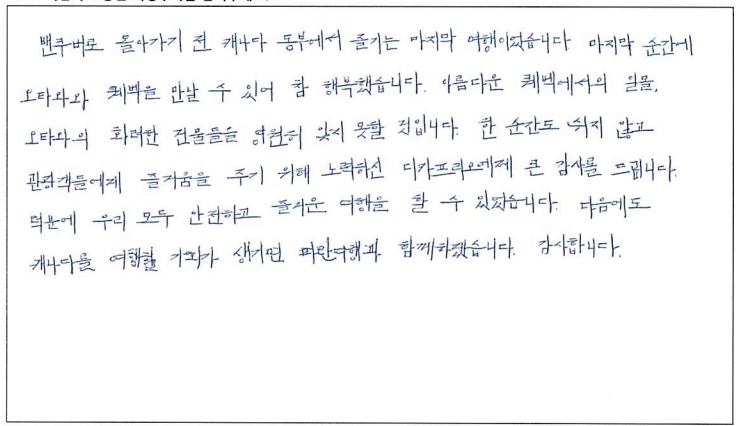 밴쿠버로 돌아가기 전 캐나다 동부에서 즐기는 마지막 여행이었습니다 마지막 순간에
오타와와 퀘벡을 만날 수 있어 참 행복했습니다. 아름다운 퀘벡에서의 일몰,
오타와의 화려한 건물들을 영원히 잊지 못할 것입니다. 한 순간도 쉬지 않고
관광객들에게 즐거움을 주기 위해 노력하신 디카프리오에게 큰 감사를 드립니다.
덕분에 우리 모두 안전하고 즐거운 여행을 할 수 있었습니다. 다음에도
캐나다를 여행할 기회가 생기면 파란여행과 함께하겠습니다. 감사합니다.